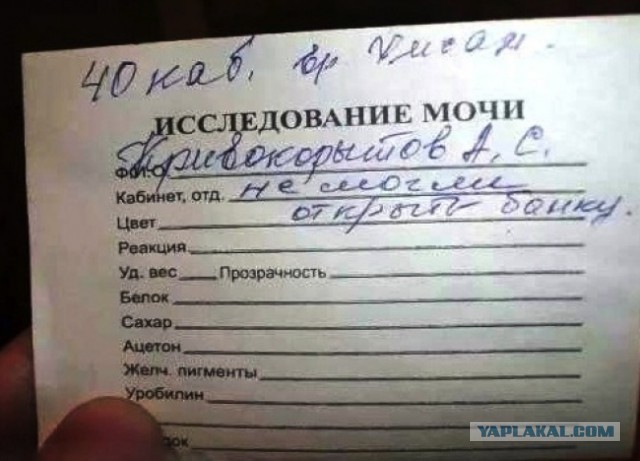 40 каб. вр
ИССЛЕДОВАНИЕ МОЧИ
Ф.И.О. Кривокорытов А. С.
Кабинет, отд. не могли
Цвет открыть банку.
Реакция
Уд. вес Прозрачность
Белок
Сахар
Ацетон
Желч. пигменты
Уробилин
YAPLAKAL.COM